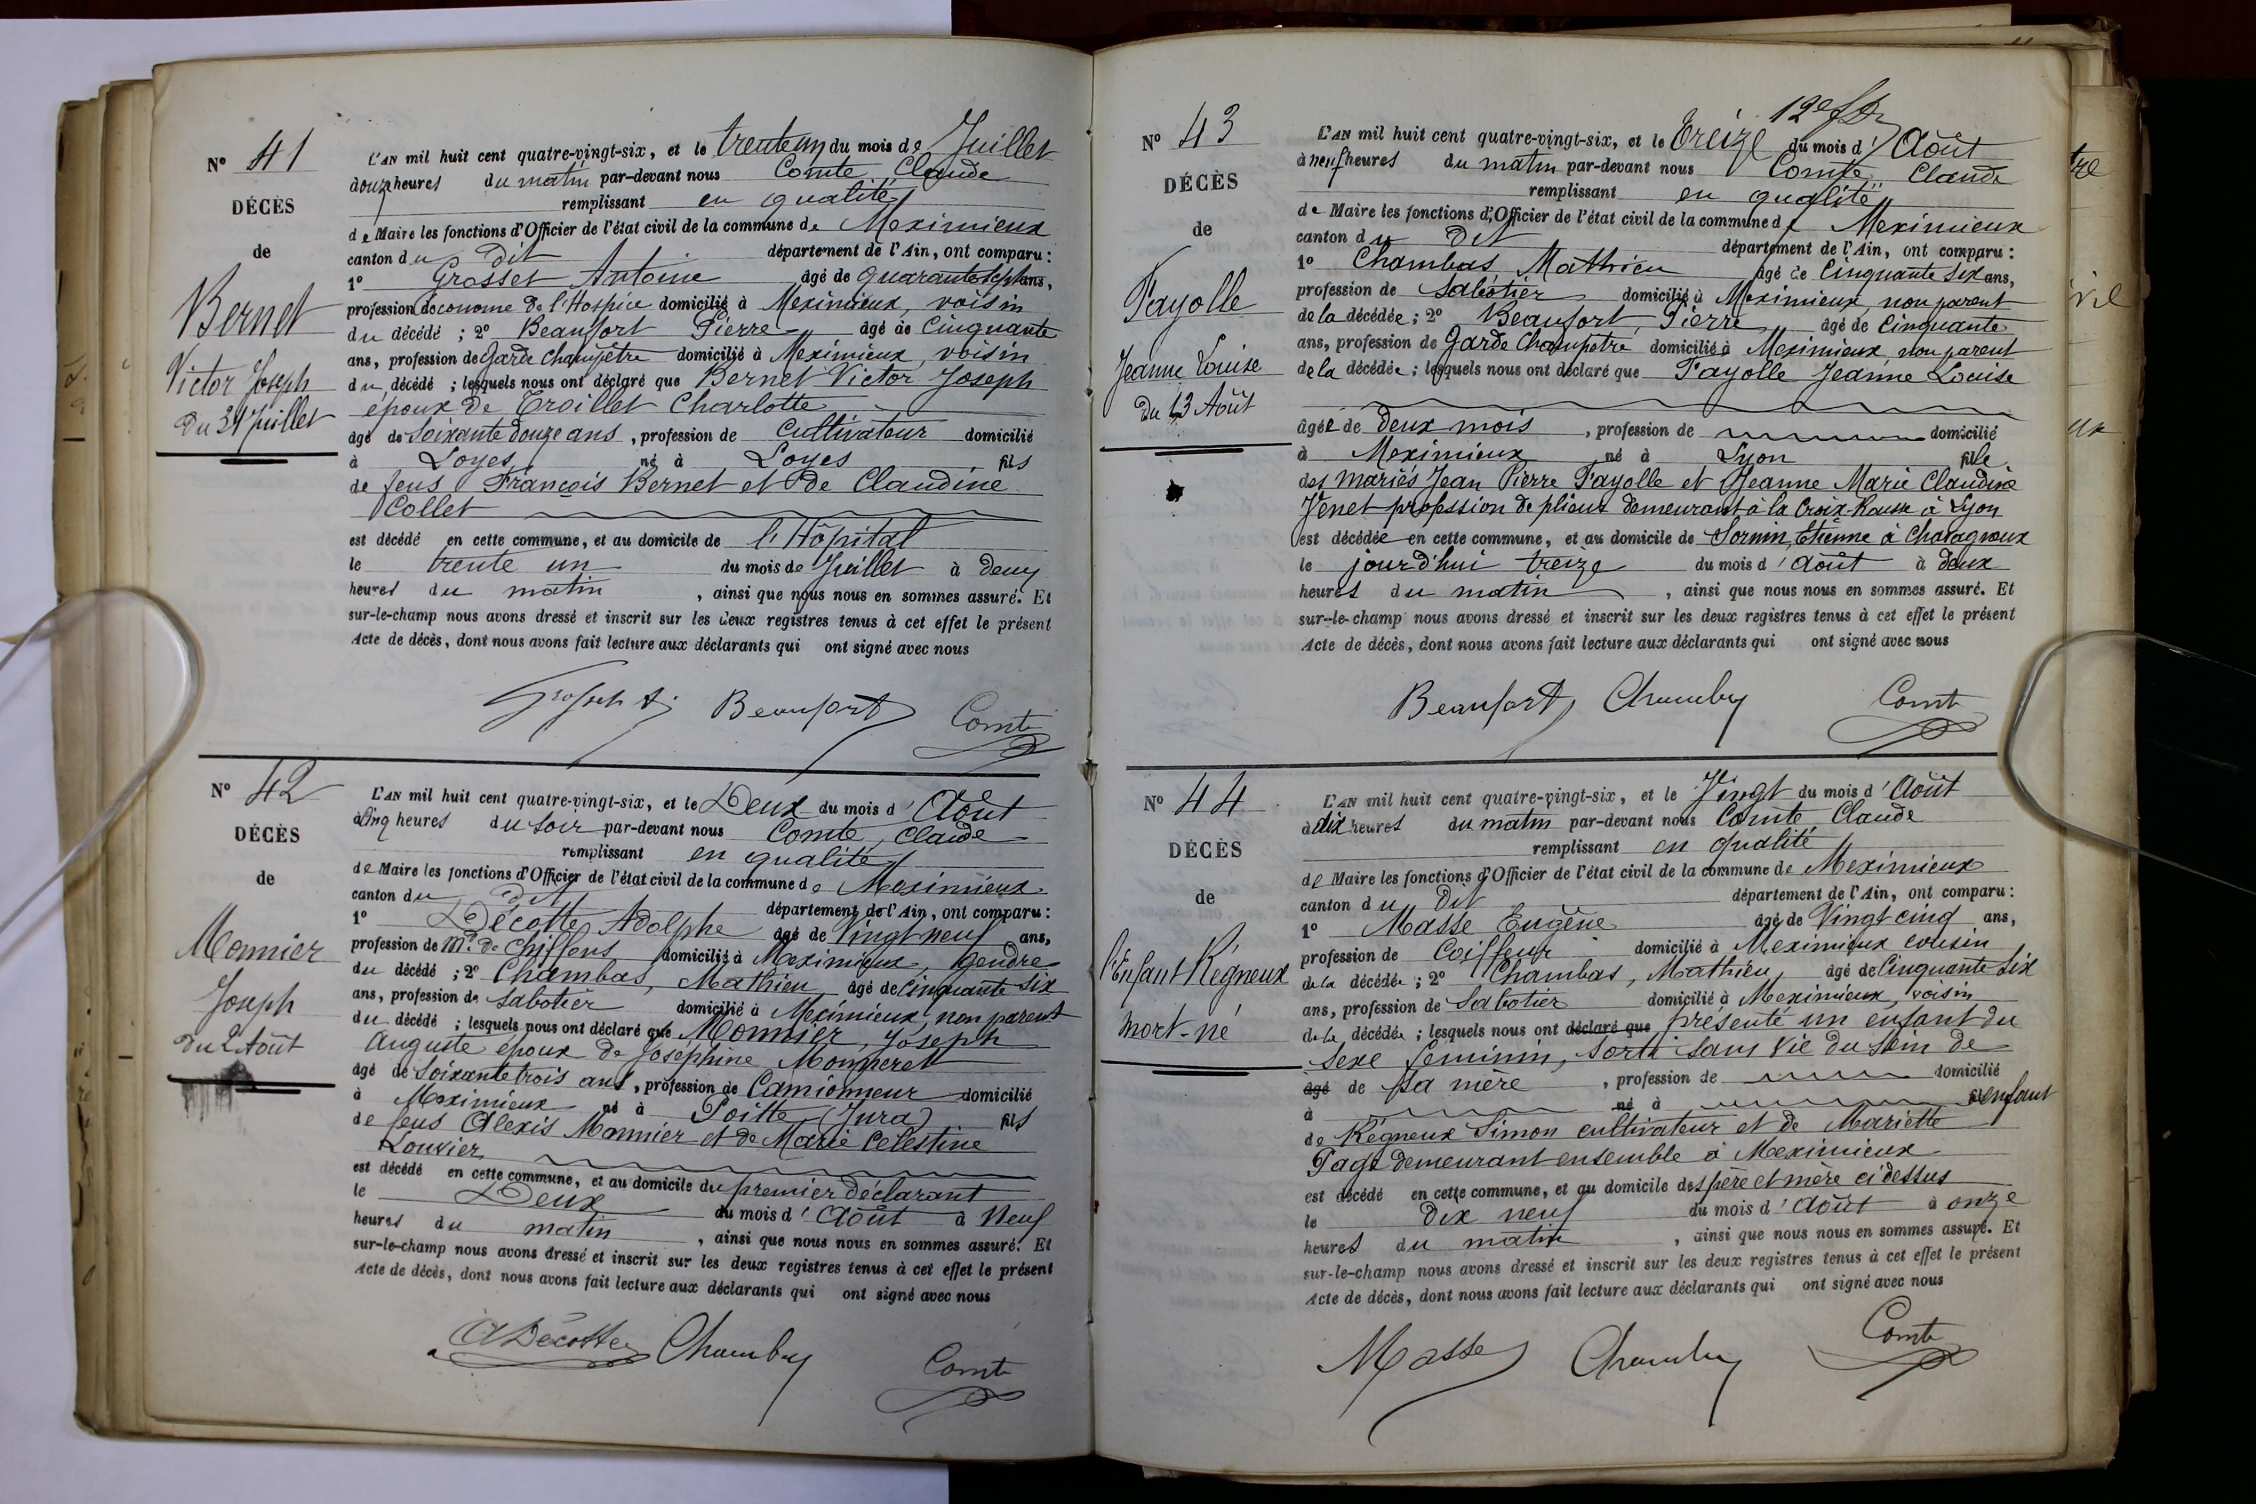 N° 41
DÉCÈS
de
Bernet
Victor Joseph
du 31 Juillet
L'AN mil huit cent quatre-vingt-six, et le trente un du mois de Juillet
à onze heures du matin par-devant nous Comte, Claude
remplissant en qualité
de Maire les fonctions d'Officier de l'état civil de la commune de Meximieux
canton du dit département de l'Ain, ont comparu :
1° Grosset Antoine âgé de quarante sept ans,
profession d'oeconome de l'Hospice domicilié à Meximieux, voisin
du décédé ; 2° Beaufort Pierre âgé de Cinquante
ans, profession de Garde Champêtre domicilié à Meximieux, voisin
du décédé ; lesquels nous ont déclaré que Bernet Victor Joseph
époux de Troillet Charlotte
âgé de Soixante douze ans, profession de Cultivateur domicilié
à Loyes né à Loyes fils
de feus François Bernet et de Claudine
Collet
est décédé en cette commune, et au domicile de l'Hôpital
le trente un du mois de Juillet à deux
heures du matin, ainsi que nous nous en sommes assuré. Et
sur-le-champ nous avons dressé et inscrit sur les deux registres tenus à cet effet le présent
Acte de décès, dont nous avons fait lecture aux déclarants qui ont signé avec nous
Beaufort Comte
N° 42
DÉCÈS
de
Monnier
Joseph
du 2 Août
L'AN mil huit cent quatre-vingt-six, et le Deux du mois d'Août
à Cinq heures du soir par-devant nous Comte, Claude
remplissant en qualité
de Maire les fonctions d'Officier de l'état civil de la commune de Meximieux
canton du dit département de l'Ain, ont comparu :
1° Décotte Adolphe âgé de Vingt neuf ans,
profession de Md de Chiffons domicilié à Meximieux, Gendre
du décédé ; 2° Chambas, Mathieu âgé de Cinquante six
ans, profession de Sabotier domicilié à Meximieux, non parent
du décédé ; lesquels nous ont déclaré que Monnier, Joseph
Auguste époux de Joséphine Monneret
âgé de Soixante trois ans, profession de Camionneur domicilié
à Meximieux né à Poitte (Jura) fils
de feus Alexis Monnier et de Marie Celestine
Louvier
est décédé en cette commune, et au domicile du premier déclarant
le Deux du mois d'Août à Neuf
heures du matin, ainsi que nous nous en sommes assuré. Et
sur-le-champ nous avons dressé et inscrit sur les deux registres tenus à cet effet le présent
Acte de décès, dont nous avons fait lecture aux déclarants qui ont signé avec nous
A Décotte Chambas Comte
N° 43
DÉCÈS
de
Fayolle
Jeanne Louise
du 13 Août
L'AN mil huit cent quatre-vingt-six, et le Treize du mois d'Août
à neuf heures du matin par-devant nous Comte Claude
remplissant en qualité
de Maire les fonctions d'Officier de l'état civil de la commune de Meximieux
canton du Dit département de l'Ain, ont comparu :
1° Chambas, Mathieu âgé de Cinquante six ans,
profession de Sabotier domicilié à Meximieux, non parent
de la décédée ; 2° Beaufort, Pierre âgé de Cinquante
ans, profession de Garde Champêtre domicilié à Meximieux, non parent
de la décédée ; lesquels nous ont déclaré que Fayolle Jeanne Louise
âgée de deux mois, profession de domicilié
à Meximieux né à Lyon fille
des mariés Jean Pierre Fayolle et Jeanne Marie Claudine
Venet profession de plieur demeurant à la Croix-Rousse à Lyon
est décédée en cette commune, et au domicile de Sornin, Etienne à Chavagneux
le jourd'hui treize du mois d'Août à deux
heures du matin, ainsi que nous nous en sommes assuré. Et
sur-le-champ nous avons dressé et inscrit sur les deux registres tenus à cet effet le présent
Acte de décès, dont nous avons fait lecture aux déclarants qui ont signé avec nous
Beaufort Chambas Comte
N° 44
DÉCÈS
de
l'Enfant Régneux
mort-né
L'AN mil huit cent quatre-vingt-six, et le Vingt du mois d'Août
à dix heures du matin par-devant nous Comte Claude
remplissant en qualité
de Maire les fonctions d'Officier de l'état civil de la commune de Meximieux
canton du Dit département de l'Ain, ont comparu :
1° Masse Eugène âgé de Vingt cinq ans,
profession de Coiffeur domicilié à Meximieux cousin
de la décédée ; 2° Chambas, Mathieu âgé de Cinquante six
ans, profession de Sabotier domicilié à Meximieux, voisin
de la décédée ; lesquels nous ont déclaré que présenté un enfant du
sexe féminin, sorti sans vie du sein de
âgé de sa mère, profession de domicilié
à né à fil enfant
de Régneux Simon cultivateur et de Mariette
Page demeurant ensemble à Meximieux
est décédé en cette commune, et au domicile des père et mère ci dessus
le dix neuf du mois d'Août à onze
heures du matin, ainsi que nous nous en sommes assuré. Et
sur-le-champ nous avons dressé et inscrit sur les deux registres tenus à cet effet le présent
Acte de décès, dont nous avons fait lecture aux déclarants qui ont signé avec nous
Masse Chambas Comte